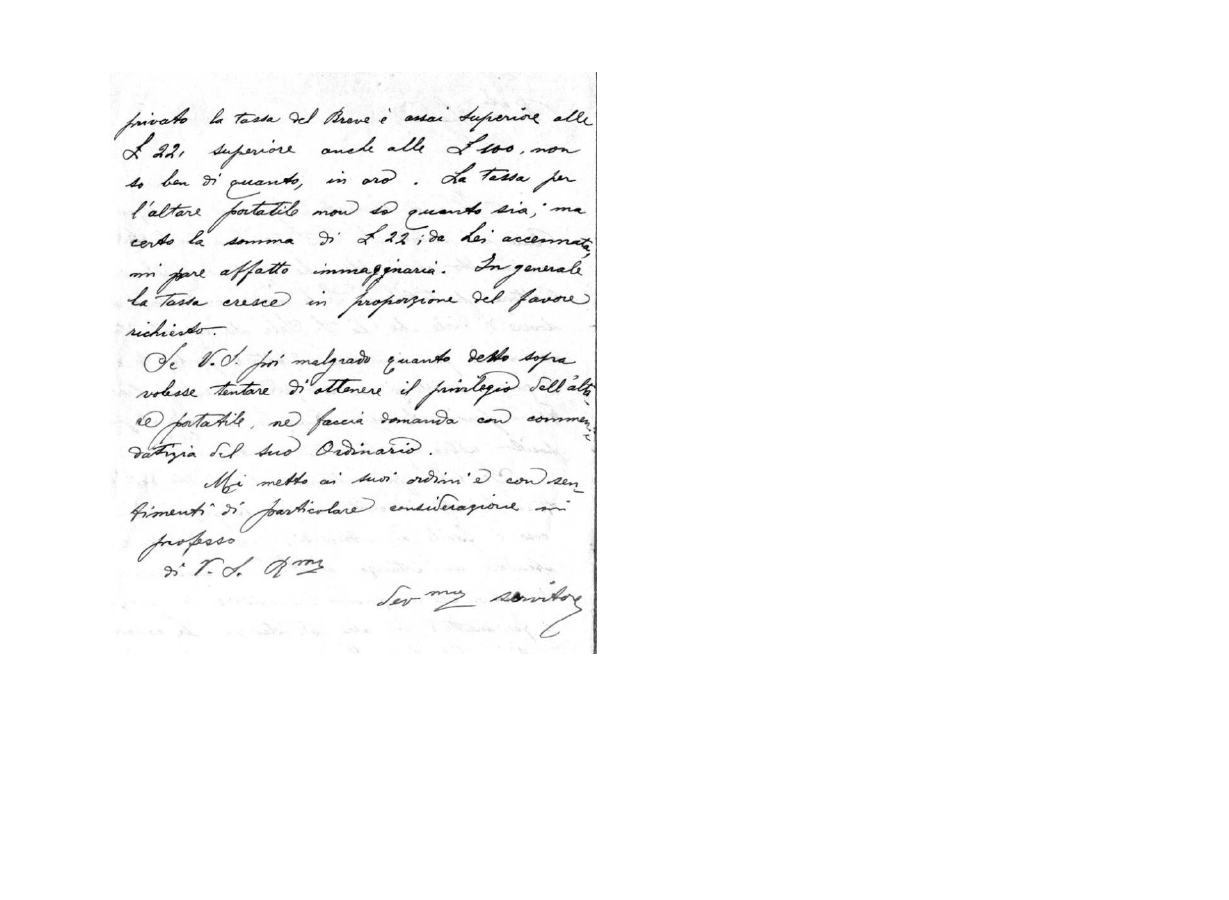 privato la tassa del Breve è assai superiore alle
£ 22, superiore anche alle £ 100, non
so ben di quanto, in oro. La tassa per
l'altare portatile non so quanto sia; ma
certo la somma di £ 22, da Lei accennata,
mi pare affatto immaginaria. In generale
la tassa cresce in proporzione del favore
richiesto.
Se V. S. poi malgrado quanto detto sopra
volesse tentare di ottenere il privilegio dell'alta-
re portatile, ne faccia domanda con commen-
datizia del suo Ordinario.
Mi metto ai suoi ordini e con sen-
timenti di particolare considerazione mi
professo
di V. S. Rma
devmo servitore